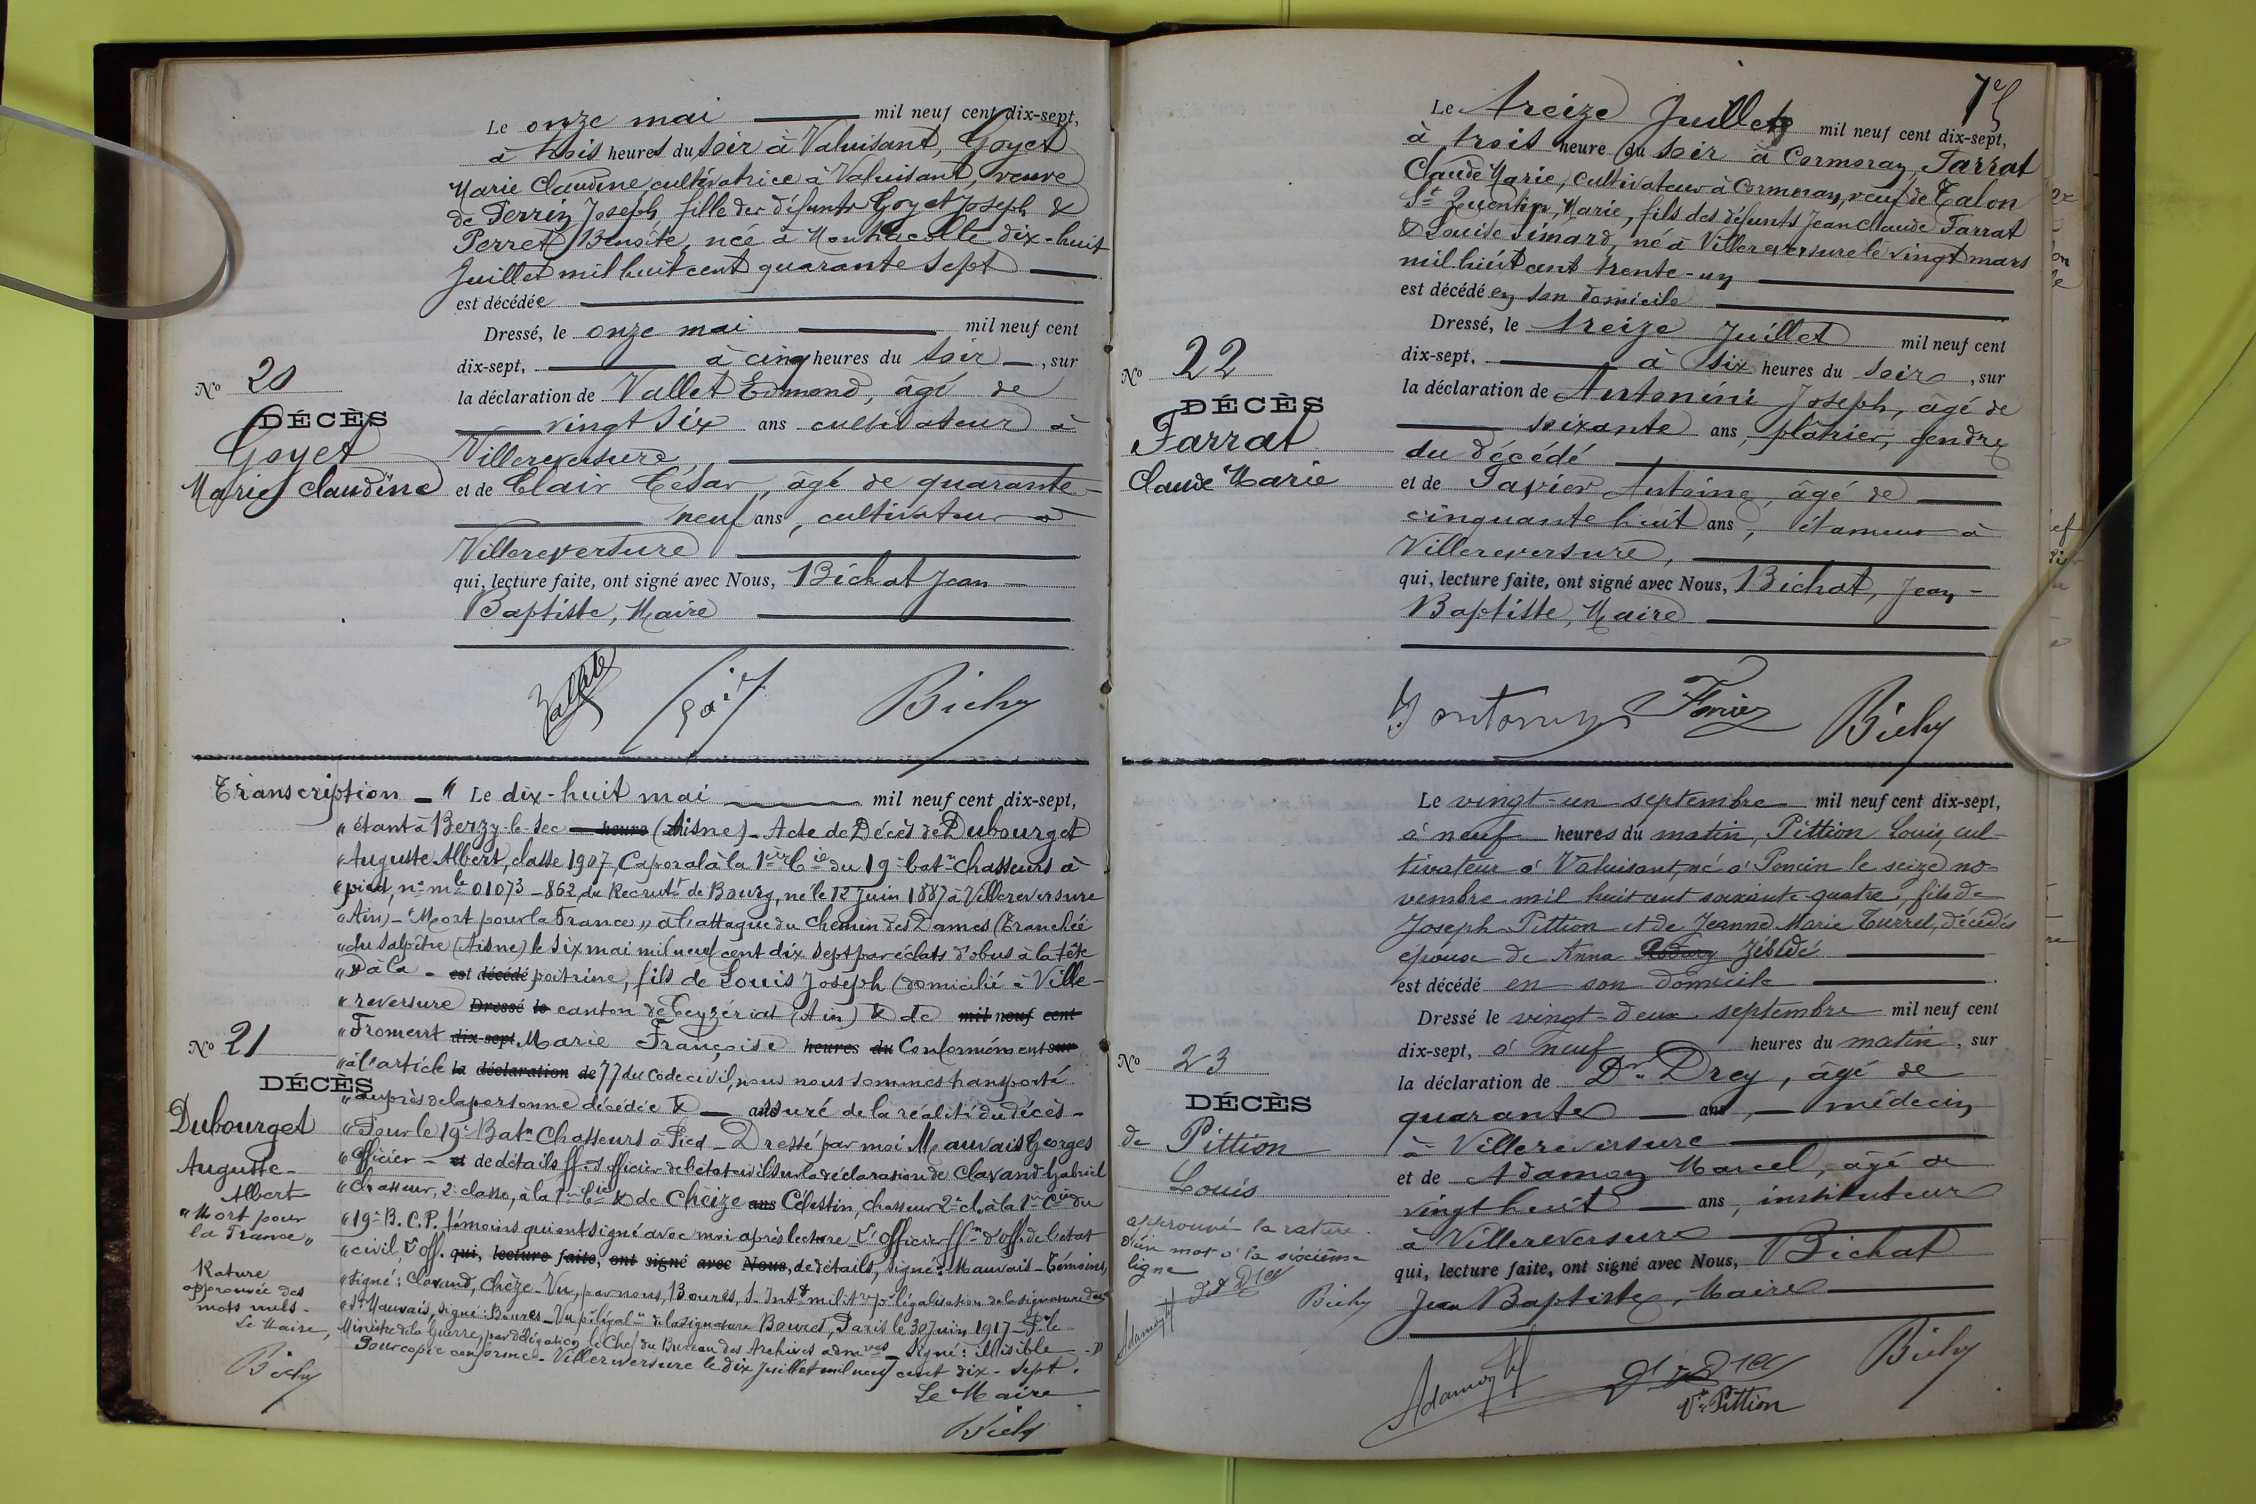 Le onze mai mil neuf cent dix-sept,
à trois heures du soir à Valuisant, Goyet
Marie Claudine, cultivatrice à Valuisant, veuve
de Perrin Joseph fille des défunts Goyet Joseph &
Perret Benoîte, née à Montracol le dix-huit
Juillet mil huit cent quarante sept
est décédée
Dressé, le onze mai mil neuf cent
dix-sept, à cinq heures du soir, sur
la déclaration de Vallet Edmond, âgé de
vingt six ans cultivateur à
Villereversure
et de Clair César, âgé de quarante-
neuf ans, cultivateur à
Villereversure
qui, lecture faite, ont signé avec Nous, Bichat Jean-
Baptiste, Maire
No 20
DÉCÈS
Goyet
Marie Claudine
Transcription - " Le dix-huit mai mil neuf cent dix-sept,
" étant à Berzy-le-Sec heure (Aisne) - Acte de Décès de Dubourget
" Auguste Albert, classe 1907, Caporal à la 1ère Cie du 19e bat.n chasseurs à
" pied, n° mle 01073 - 862 du Recrutt de Bourg, né le 12 Juin 1887 à Villereversure
" Ain) - "Mort pour la France" à l'attaque du Chemin des Dames (Tranchée
" du Salpêtre (Aisne) le six mai mil neuf cent dix sept par éclats d'obus à la tête
" & à la - est décédé poitrine, fils de Louis Joseph (domicilié à Ville-
" reversure Dressé le canton de Ceyzériat (Ain) & de mil neuf cent
" Froment dix-sept Marie Françoise heures du Conformément sur
" à l'article la déclaration de 77 du code civil, nous nous sommes transporté
" auprès de la personne décédée & assuré de la réalité du décès -
" Pour le 19e Batn Chasseurs à Pied - Dressé par moi Mauvais Georges
" Officier - et de détails ff-t officier de l'état civil sur la déclaration de Clavand Gabriel
" chasseur, 2e classe, à la 1ère Cie & de Chèze ans Célestin, chasseur 2e cl. à la 1ère Cie du
" 19e B.C.P. témoins qui ont signé avec moi après lecture L'officier ffn d'off. de l'état
" civil, L'off. qui, lecture faite, ont signé avec Nous, de détails, signé: Mauvais - Témoins,
" signé: Clavand, Chèze - Vu, par nous, Boures, S. Intt milit.re pr légalisation de la signature de
" Mr Mauvais, signé: Boures - Vu pr légal.n de la signature Boures, Paris le 30 Juin 1917 - Pr le
Ministre de la Guerre, par délégation le Chef du Bureau des Archives admves - Signé: illisible - "
Pour copie conforme - Villereversure le dix Juillet mil neuf cent dix-sept.
Le Maire
No 21
DÉCÈS
Dubourget
Auguste-
Albert
"Mort pour
la France"
Rature
approuvée des
mots nuls -
Le Maire,
75
Le treize Juillet mil neuf cent dix-sept,
à trois heure du soir à Cormoran, Farrat
Claude Marie, cultivateur à Cormoran, veuf de Talon
St Quentin, Marie, fils des défunts Jean Claude Farrat
& Louise Simard, né à Villereversure le vingt mars
mil huit cent trente-un
est décédé en son domicile
Dressé, le treize Juillet mil neuf cent
dix-sept, à six heures du soir, sur
la déclaration de Antonini Joseph, âgé de
soixante ans, plâtrier, gendre
du décédé
et de Antoine, âgé de
cinquante huit ans, étameur à
Villereversure,
qui, lecture faite, ont signé avec Nous, Bichat, Jean-
Baptiste, Maire
No 22
DÉCÈS
Farrat
Claude Marie
Le vingt-un septembre mil neuf cent dix-sept,
à neuf heures du matin, Pittion Louis, cul-
tivateur à Valuisant, né à Poncin le seize no-
vembre mil huit cent soixante-quatre, fils de
Joseph Pittion et de Jeanne Marie Turrel, décédés
époux de Anna Zébédé
est décédé en son domicile
Dressé le vingt-deux septembre mil neuf cent
dix-sept, à neuf heures du matin, sur
la déclaration de Dr Drey, âgé de
quarante ans, médecin
à Villereversure
et de Adamoz Marcel, âgé de
vingt huit ans, instituteur
à Villereversure
qui, lecture faite, ont signé avec Nous, Bichat
Jean Baptiste, Maire
No 23
DÉCÈS
de Pittion
Louis
approuvé la rature
d'un mot à la sixième
ligne
Vve Pittion